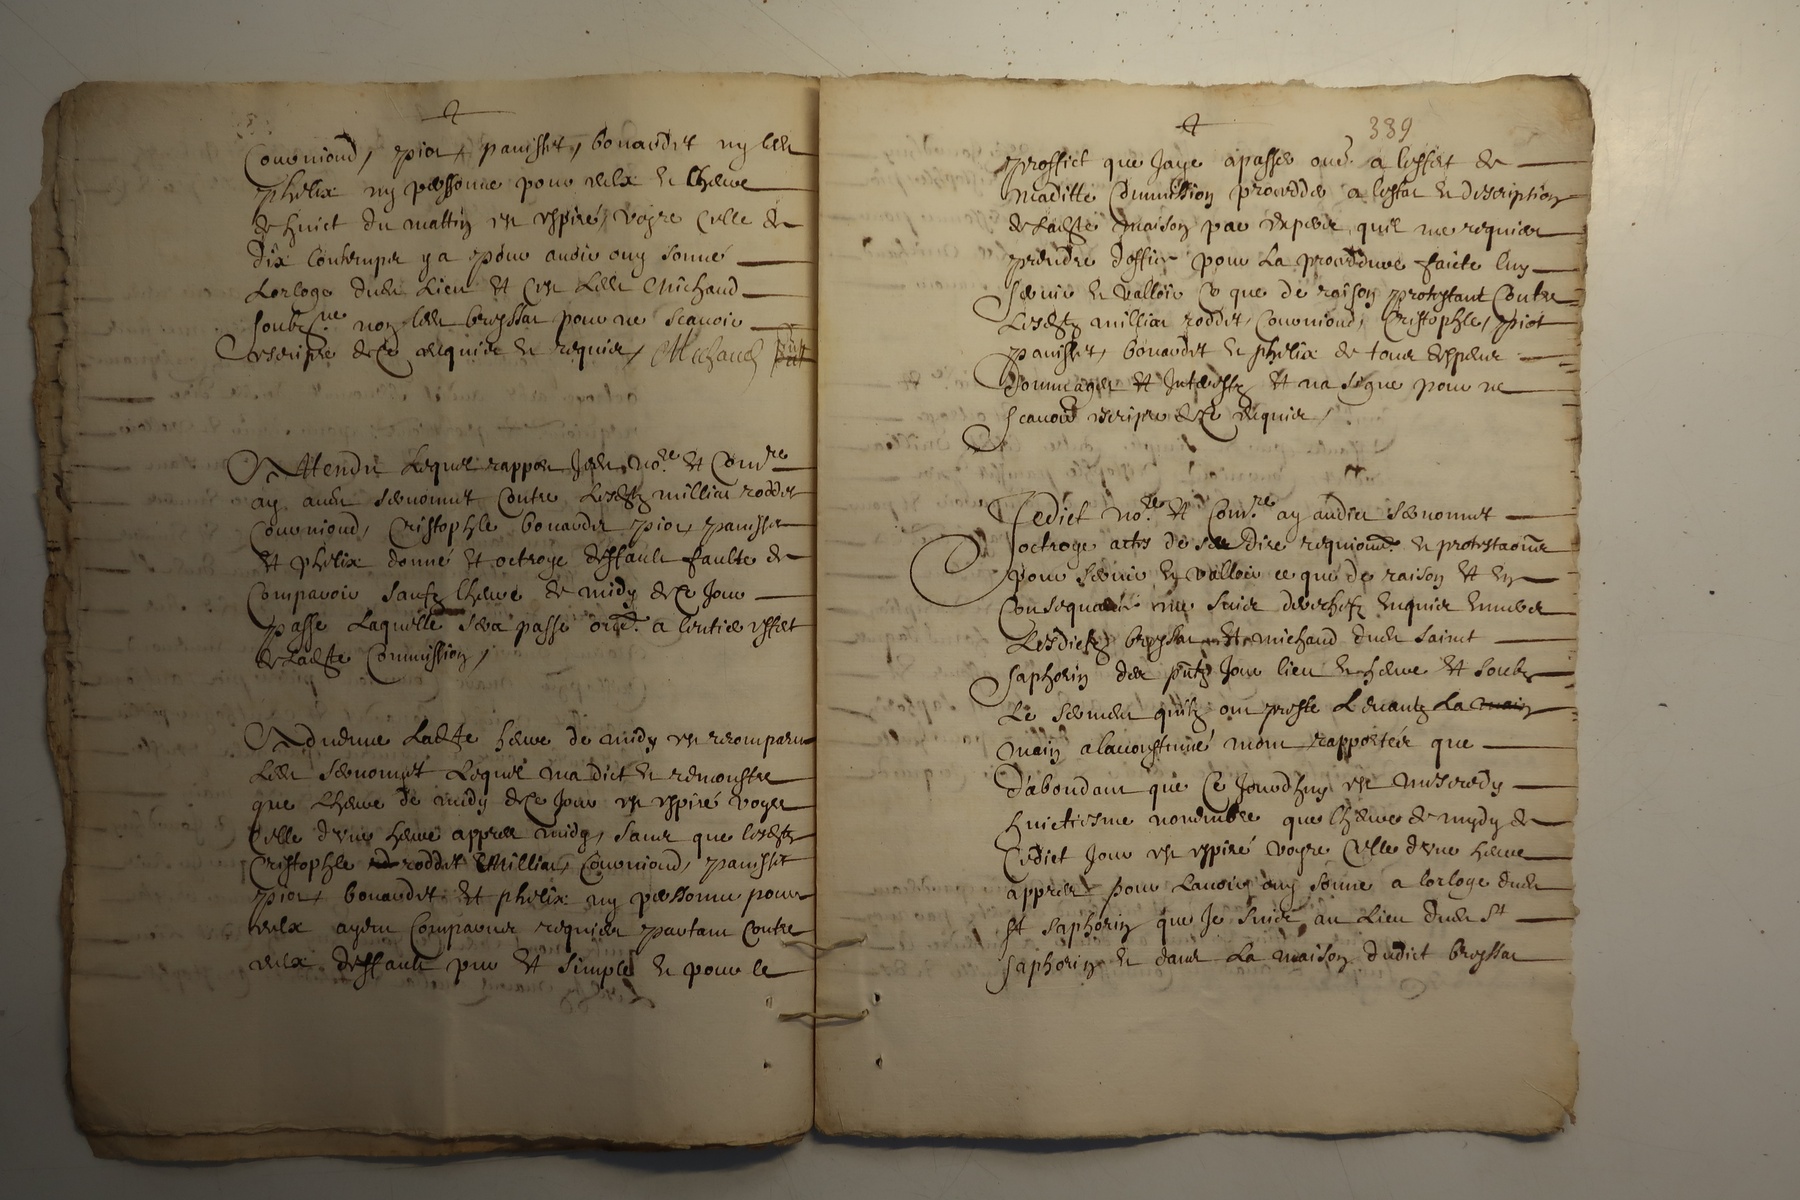 Couvniond, piot, panisset, bonaudet ny led.
phelix ny personne pour eulx et lheure
de huict du mattin est expiré, voyre celle de
dix Contemper y a pour avoir ouy sonné
Lorloge dud. Lieu et s'est led. Michaud
soub.ne non led. broyssat pour ne scavoir
escripre de ce requis et requier, Michaud
Attendu Lequel rapport Je d. no.re et Com.re
ay aud. sevonnut Contre Lesd. millian roddet
Couvniond, Cristophle bonaudet piot, panisset
et phelix donné et octroye deffault faulte de
Comparoir sauf lheure de midy de ce Jour
passe Laquelle sera passé oul.e a lentier effect
de Lad.te Commission,
Advenue Lad.te heure de midy est recomparu
Led. sevonnut Lequel ma dict et remonstre
que Lheure de midy de ce Jour est expiré voyre
Celle d'une heure appres midy, sans que lesd.
Cristophle roddet Millian, Couvniond, panisset
piot, bonaudet et phelix ny personne pour
eulx ayent Comparus requier partant Contre
eulx deffault pur et simple et pour le
389
proffict que Jaye a passer oul.e a leffect de
maditte Commission proceddé a lestat et description
de Lad.te maison par expert quil me requier
prendre doffice pour La proceddure faicte luy
servir et valloir Ce que de raison protestant Contre
Lesd. millian roddet, Couvniond, Cristophle, piot
panisset, bonaudet et phelix de tous despens
dommages et Interestz et na signe pour ne
scavoir escripre de ce requis,
Jedict no.re et Com.re ay audict sevonnut
octroye acte de son dire requi.on et protesta.on
pour servir et valloir ce que de raison et en
Consequance me suis derechefz enquis envers
Lesdictz broyssat et michaud dud. saint
saphorin des p.ntz Jour lieu et heure et soubz
Le serment quilz ont preste Levantz La main
main alaccoustumé mont rapportés que
d'abondant que Ce Jourdhuy est mescredy
huictiesme novembre que lheure de mydy de
Cedict Jour est expiré voyre Celle d'une heure
appres pour Lavoir ouy sonne a lorloge dud.
St saphorin que Je suis au Lieu dud. St
saphorin et dans La maison dudict broyssat